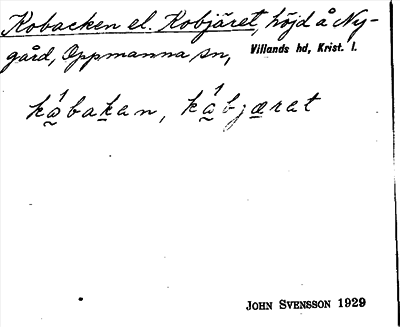 Kobacken el. Kobjäret, höjd å Ny-
gård, Oppmanna sn, Villands hd, Krist. l.
ka̰̍bak̠an, ka̰̍bjæ̠rat
JOHN SVENSSON 1929